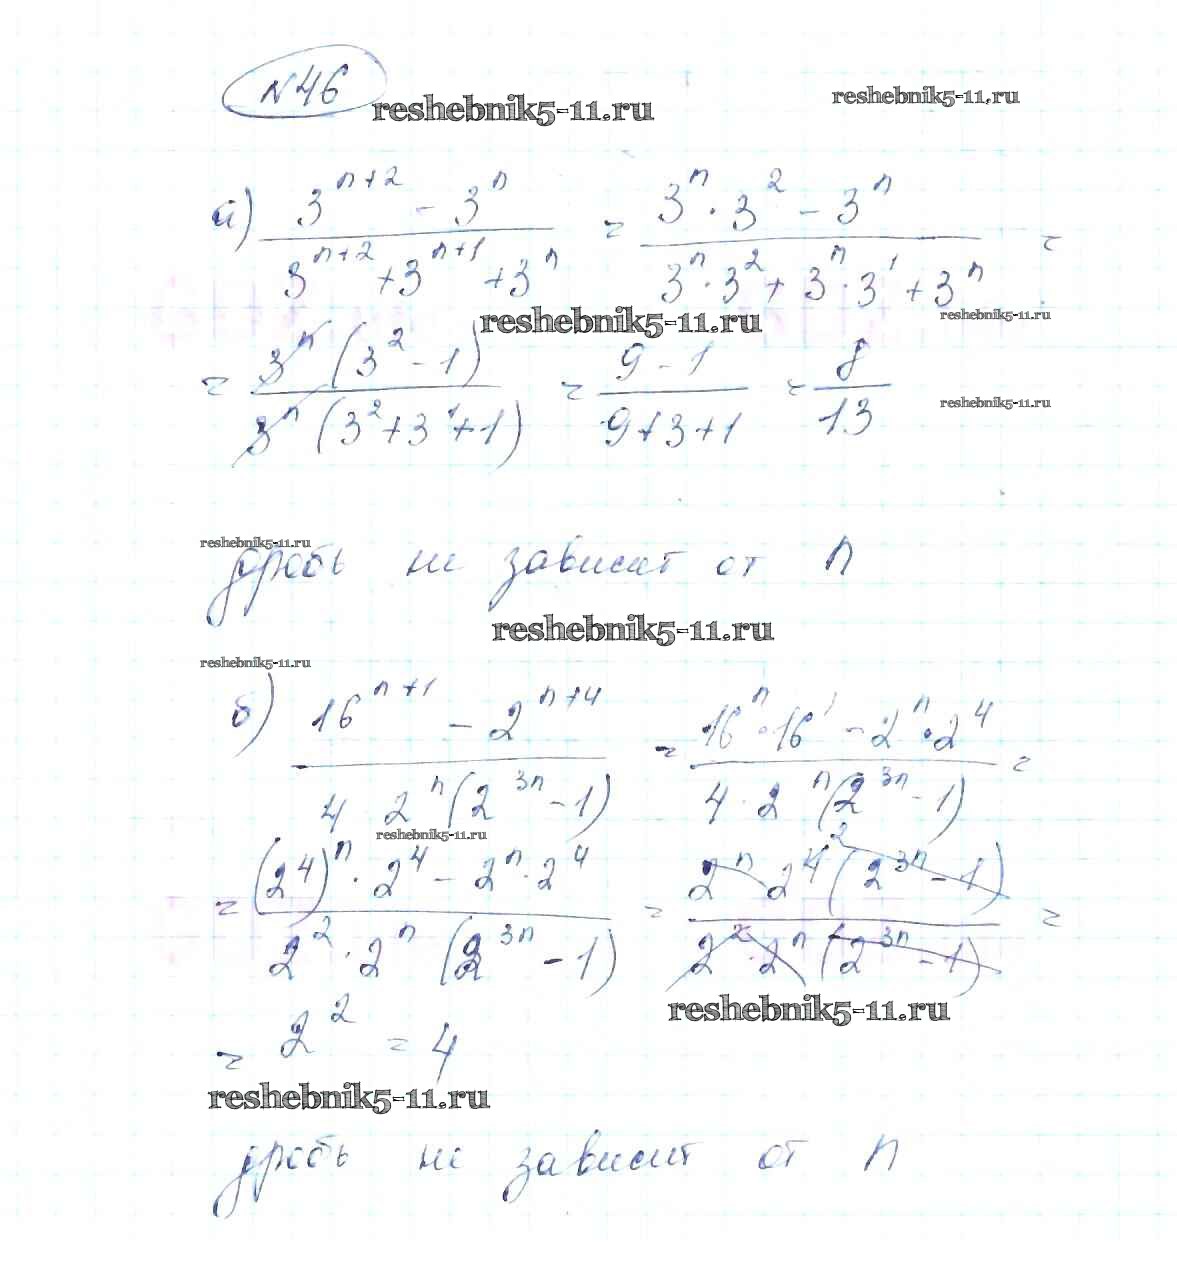 №46
reshebnik5-11.ru
reshebnik5-11.ru
а) (3^(n+2) - 3^n) / (3^(n+2) + 3^(n+1) + 3^n) = (3^n · 3^2 - 3^n) / (3^n · 3^2 + 3^n · 3^1 + 3^n) =
reshebnik5-11.ru
reshebnik5-11.ru
= 3^n (3^2 - 1) / 3^n (3^2 + 3^1 + 1) = (9 - 1) / (9 + 3 + 1) = 8 / 13
reshebnik5-11.ru
reshebnik5-11.ru
дробь не зависит от n
reshebnik5-11.ru
reshebnik5-11.ru
б) (16^(n+1) - 2^(n+4)) / (4 · 2^n (2^(3n) - 1)) = (16^n · 16^1 - 2^n · 2^4) / (4 · 2^n (2^(3n) - 1)) =
reshebnik5-11.ru
= ((2^4)^n · 2^4 - 2^n · 2^4) / (2^2 · 2^n (2^(3n) - 1)) = 2^n 2^4 (2^(3n) - 1) / (2^2 · 2^n (2^(3n) - 1)) =
reshebnik5-11.ru
= 2^2 = 4
reshebnik5-11.ru
дробь не зависит от n